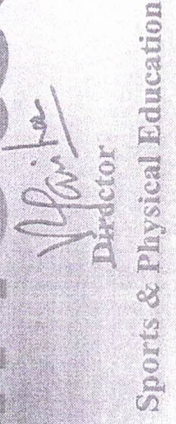 Director
Sports & Physical Education